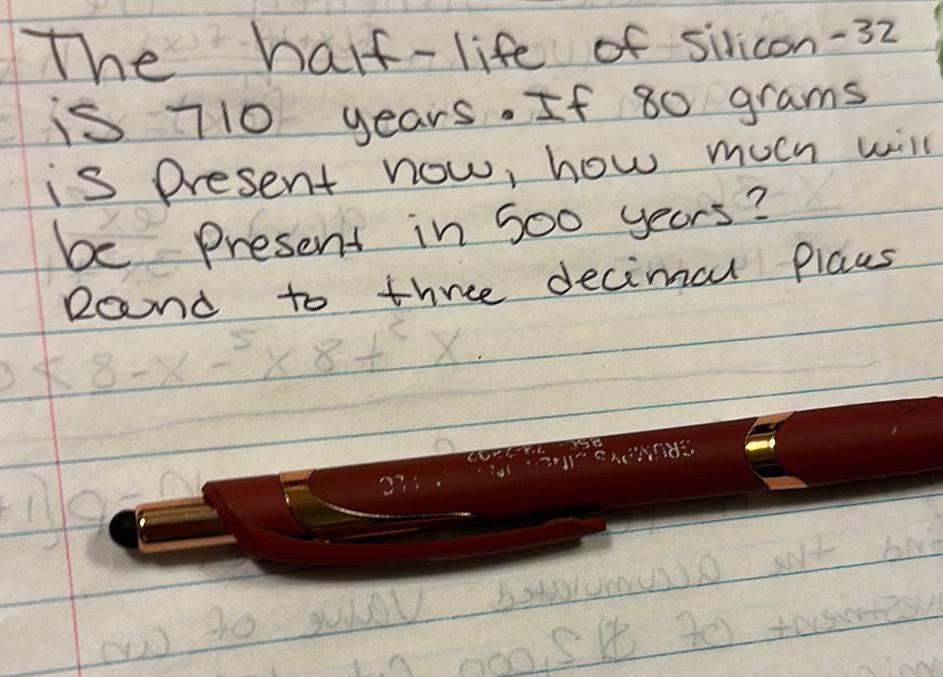 The half-life of silicon-32
is 710 years. If 80 grams
is present now, how much will
be present in 500 years?
Round to three decimal places